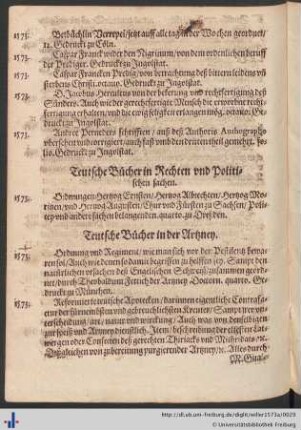 1571. Betbüchlin Verrepei/ jetzt auff alle tag in der Wochen geordnet/
12. Gedruckt zu Cöln.
1573. Caspar Franck wider den Nigrinum/ von dem ordenlichen beruff
der Prediger. Gedruckt zu Ingolstat.
1573. Caspar Francken Predig/ von betrachtung deß bittern leidens vñ
sterbens Christi. octavo. Gedruckt zu Ingolstat.
1573. D. Jacobus Heeratus von der bekerung vnd rechtfertigung des
Sünders. Auch wie der gerechtfertigte Mensch die erworbne recht-
fertigung erhalten/ vnd die ewig seligkeit erlangen mög. octavo. Ge-
druckt zu Ingolstat.
1573. Andree Perneders schrifften/ auß deß Authoris Authographo
vbersehen vnd corrigiert/ auch
fo-
lio. Gedruckt zu Ingolstat.
Teutsche Bücher in Rechten vnd Politi-
schen sachen.
Ordnungen Hertzog Ernsten/ Hertzog Albrechten/ Hertzog Mo-
ritzen/ vnd Hertzog Augusten/ Chur vnd Fürsten zu Sachsen/ Poli-
cey vnd andere sachen belangenden. quarto. zu Dreßden.
Teutsche Bücher in der Artzney.
Ordnung vnd Regiment/ wie man sich vor der Pestilentz bewa-
ren sol/ Auch wie denen so damit
zu helffen sey. Sampt den
natürlichen vrsachen deß Englischen Schweiß/ zusammen geord-
net/ durch Theobaldum Fettich der Artzney Doctorn. quarto. Ge-
druckt zu München.
1573. Reformierte teutsche Apotecken/ darinnen eigentliche Contrafac-
tur der fürnemsten vnd gebreuchlichsten Kreuter/ Sampt
vnderscheidung/ art/ natur vnd wirckung/ Auch was von denselbigen
zur speiß vnd Artzney dienstlich. Item/ beschreibung der
Lat-
wergen oder Confecten deß gerechten Thiriacks vnd Mithridats/ ꝛc.
Deßgleichen von zubereitung purgierender Artzney/ ꝛc. Alles durch
M. Gual-
http://dl.ub.uni-freiburg.de/diglit/weller1573a/0029
© Universitätsbibliothek Freiburg